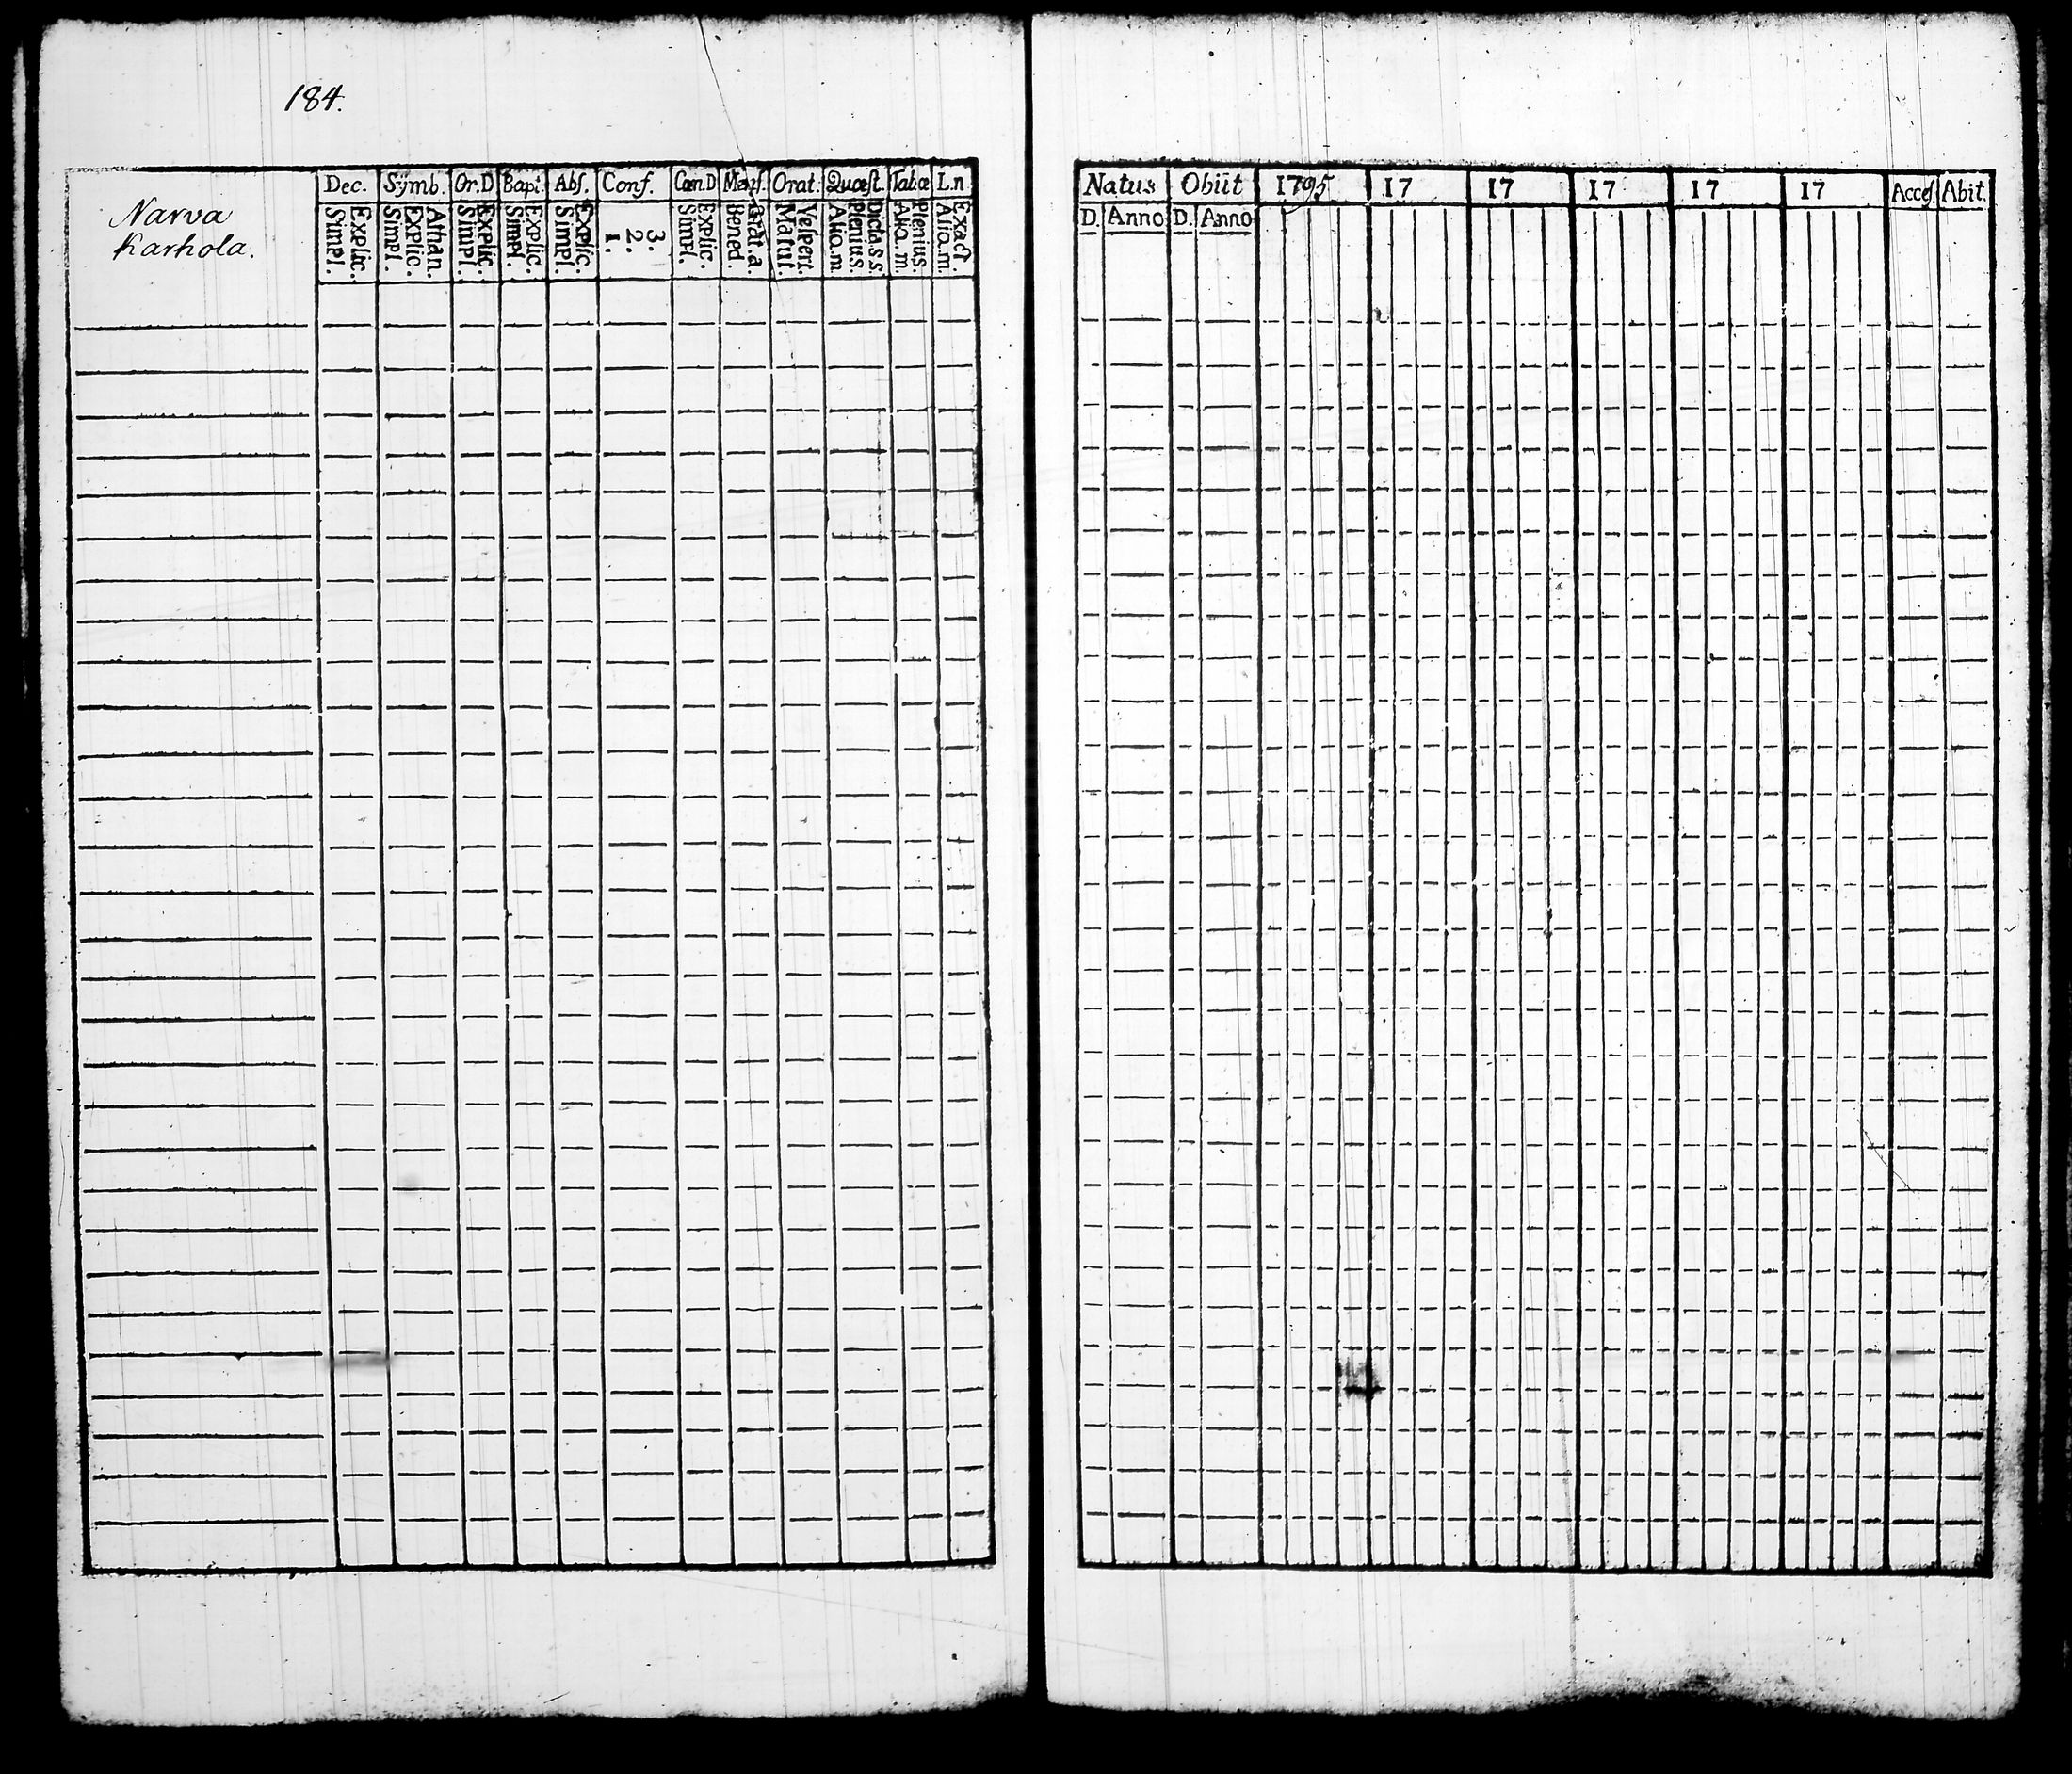 184.
Narva
Karhola.
Dec. Symb. Or.D Bapt. Abs. Conf. Cœn.D Mens. Orat. Quæst. Tabæ L.n
Explic. Simpl. Athan. Explic. Simpl. Explic. Simpl. Explic. Simpl. Explic. Simpl. 3. 2. 1. Explic. Simpl. Grat.a. Bened. Vespert. Matut. Dicta s.s. Plenius. Aliq.m. Plenius. Aliq.m. Exact. Aliq.m.
Natus Obiit 1795 17 17 17 17 17 Acces. Abit.
D. Anno D. Anno